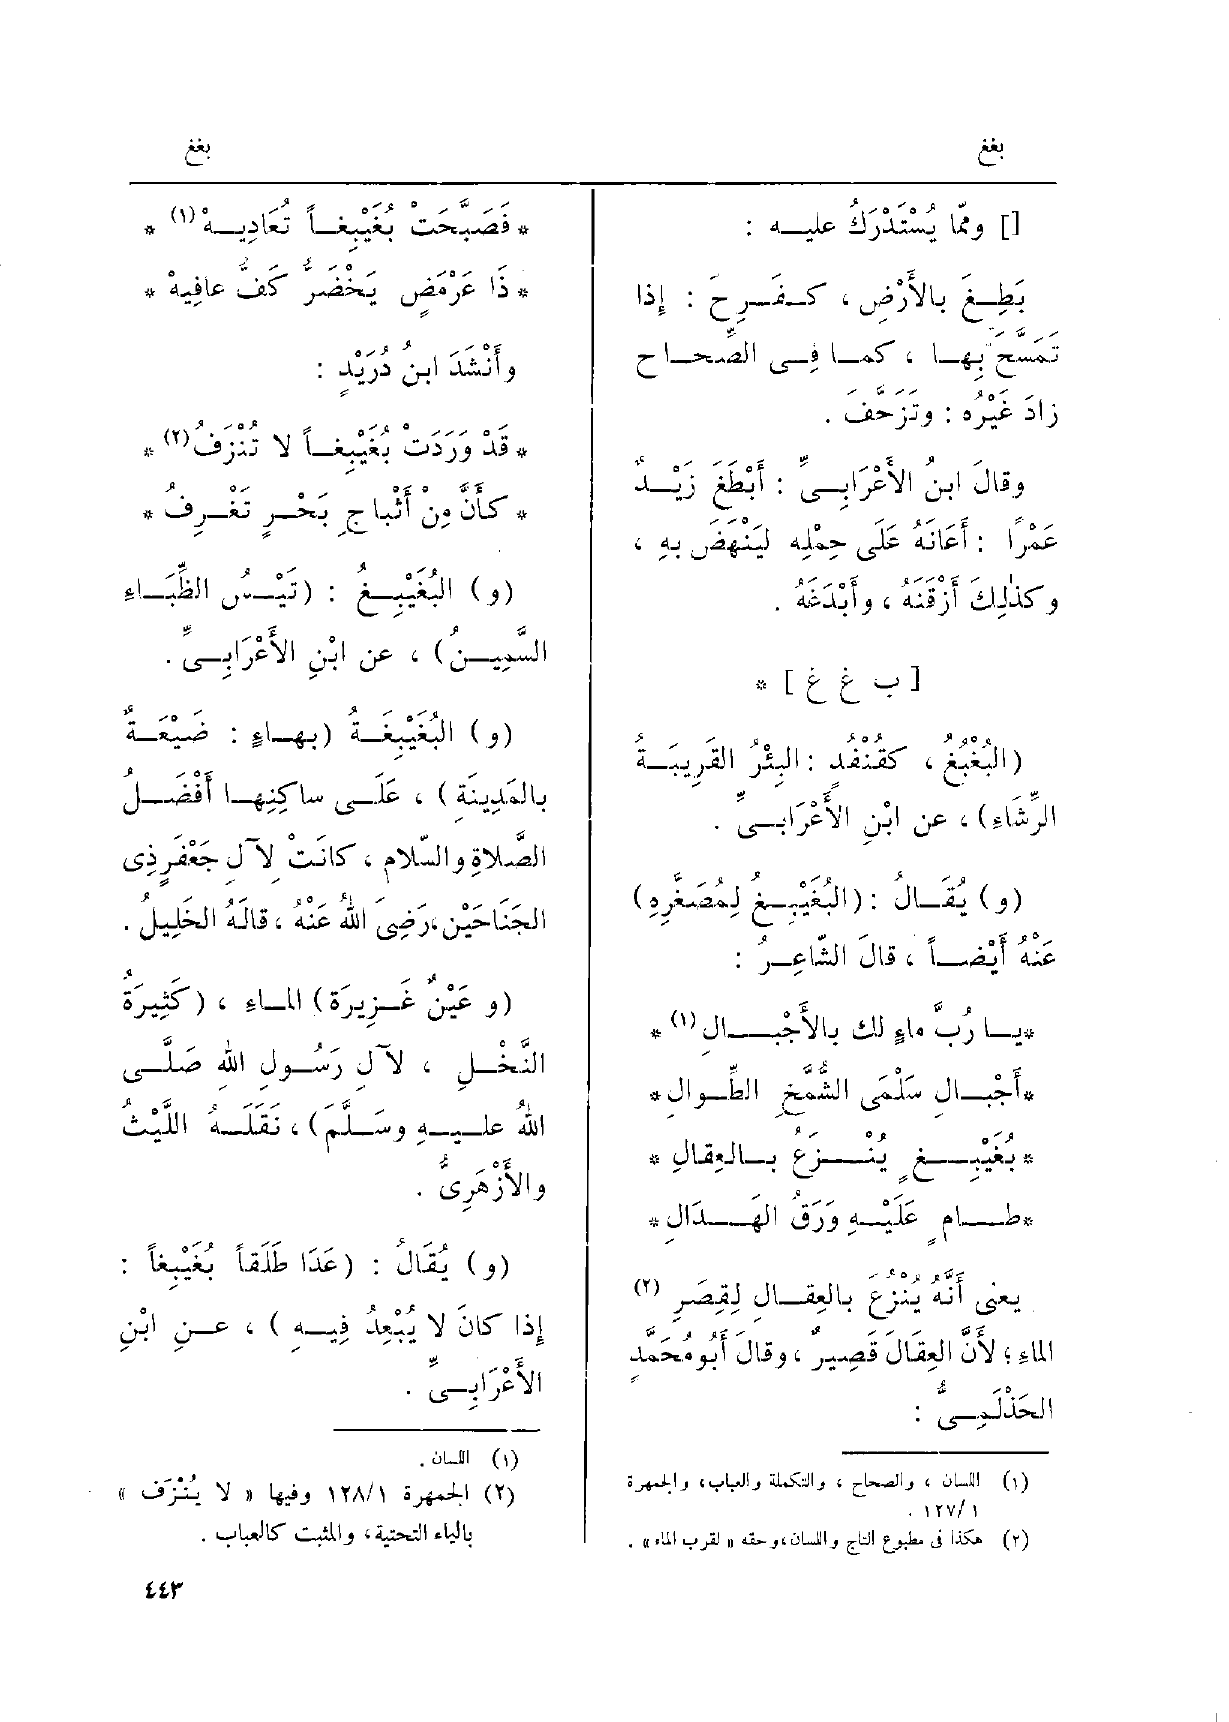 بغغ
بغغ
[] وممّا يُسْتَدْرَكُ عليه :
بَطِغَ بالأَرْضِ ، كفَرِحَ : إذا
تَمَسَّحَ بها ، كما فى الصّحاح
زادَ غَيْرُه : وتَزَحَّفَ .
وقالَ ابنُ الأَعْرَابىِّ : أَبْطَغَ زَيْدٌ
عَمْرًا : أَعَانَهُ عَلَى حِمْلِه لِيَنْهَضَ بِهِ ،
وكذٰلِكَ أَزْقَنَهُ ، وأَبْدَغَهُ .
[ ب غ غ ] *
(البُغْبُغُ ، كقُنْفُدٍ : البِئْرُ القَرِيبَةُ
الرِّشَاءِ) ، عن ابْنِ الأَعْرَابىِّ .
(و) يُقَالُ : (البُغَيْبِغُ لِمُصَغَّرِهِ)
عَنْهُ أَيْضاً ، قالَ الشّاعِرُ :
*يا رُبَّ ماءٍ لك بالأَجْبالِ (١) *
*أَجْبالِ سَلْمَى الشُّمَّخِ الطِّوالِ *
*بُغَيْبِغٍ يُنْزَعُ بالعِقالِ *
*طامٍ عَلَيْهِ وَرَقُ الهَدَالِ *
يعنى أَنَّهُ يُنْزَعُ بالعِقالِ لِقِصَرِ (٢)
الماءِ ؛ لأَنَّ العِقَالَ قَصِيرٌ ، وقالَ أَبُو مُحَمَّدٍ
الحَذْلَمِىُّ :
(١) اللسان ، والصحاح ، والتكملة والعباب، والجمهرة
١ /١٢٧ .
(٢) هكذا فى مطبوع التاج واللسان، وحقه « لقرب الماء » .
*فَصَبَّحَتْ بُغَيْبِغاً تُعَادِيهْ (١) *
*ذَا عَرْمَضٍ يَخْضَرُّ كَفُّ عافِيهْ *
وأَنْشَدَ ابنُ دُرَيْدٍ :
*قَدْ وَرَدَتْ بُغَيْبِغاً لا تُنْزَفُ (٢) *
*كأَنَّ مِنْ أَثْباجِ بَحْرٍ تَغْرِفُ *
(و) البُغَيْبِغُ : (تَيْسُ الظِّبَاءِ
السَّمِينُ) ، عن ابْنِ الأَعْرَابىِّ .
(و) البُغَيْبِغَةُ (بهاءٍ : ضَيْعَةٌ
بالمَدِينَةِ) ، عَلَى ساكِنِها أَفْضَلُ
الصَّلاةِ والسّلامِ ، كانَتْ لآلِ جَعْفَرٍ ذِى
الجَنَاحَيْنِ، رَضِىَ اللهُ عَنْهُ ، قالَهُ الخَلِيلُ .
(و عَيْنٌ غَزِيرَة) الماءِ ، (كَثِيرَةُ
النَّخْلِ ، لآلِ رَسُولِ اللهِ صَلَّى
اللهُ عليهِ وسَلَّمَ) ، نَقَلَهُ اللَّيْثُ
والأَزْهَرِىُّ .
(و) يُقَالُ : (عَدَا طَلَقاً بُغَيْبِغاً :
إذا كانَ لا يُبْعِدُ فِيهِ ) ، عن ابْنِ
الأَعْرَابىِّ .
(١) اللسان .
(٢) الجمهرة ١٢٨/١ وفيها « لا يُنْزَف »
بالياء التحتية، والمثبت كالعباب .
٤٤٣